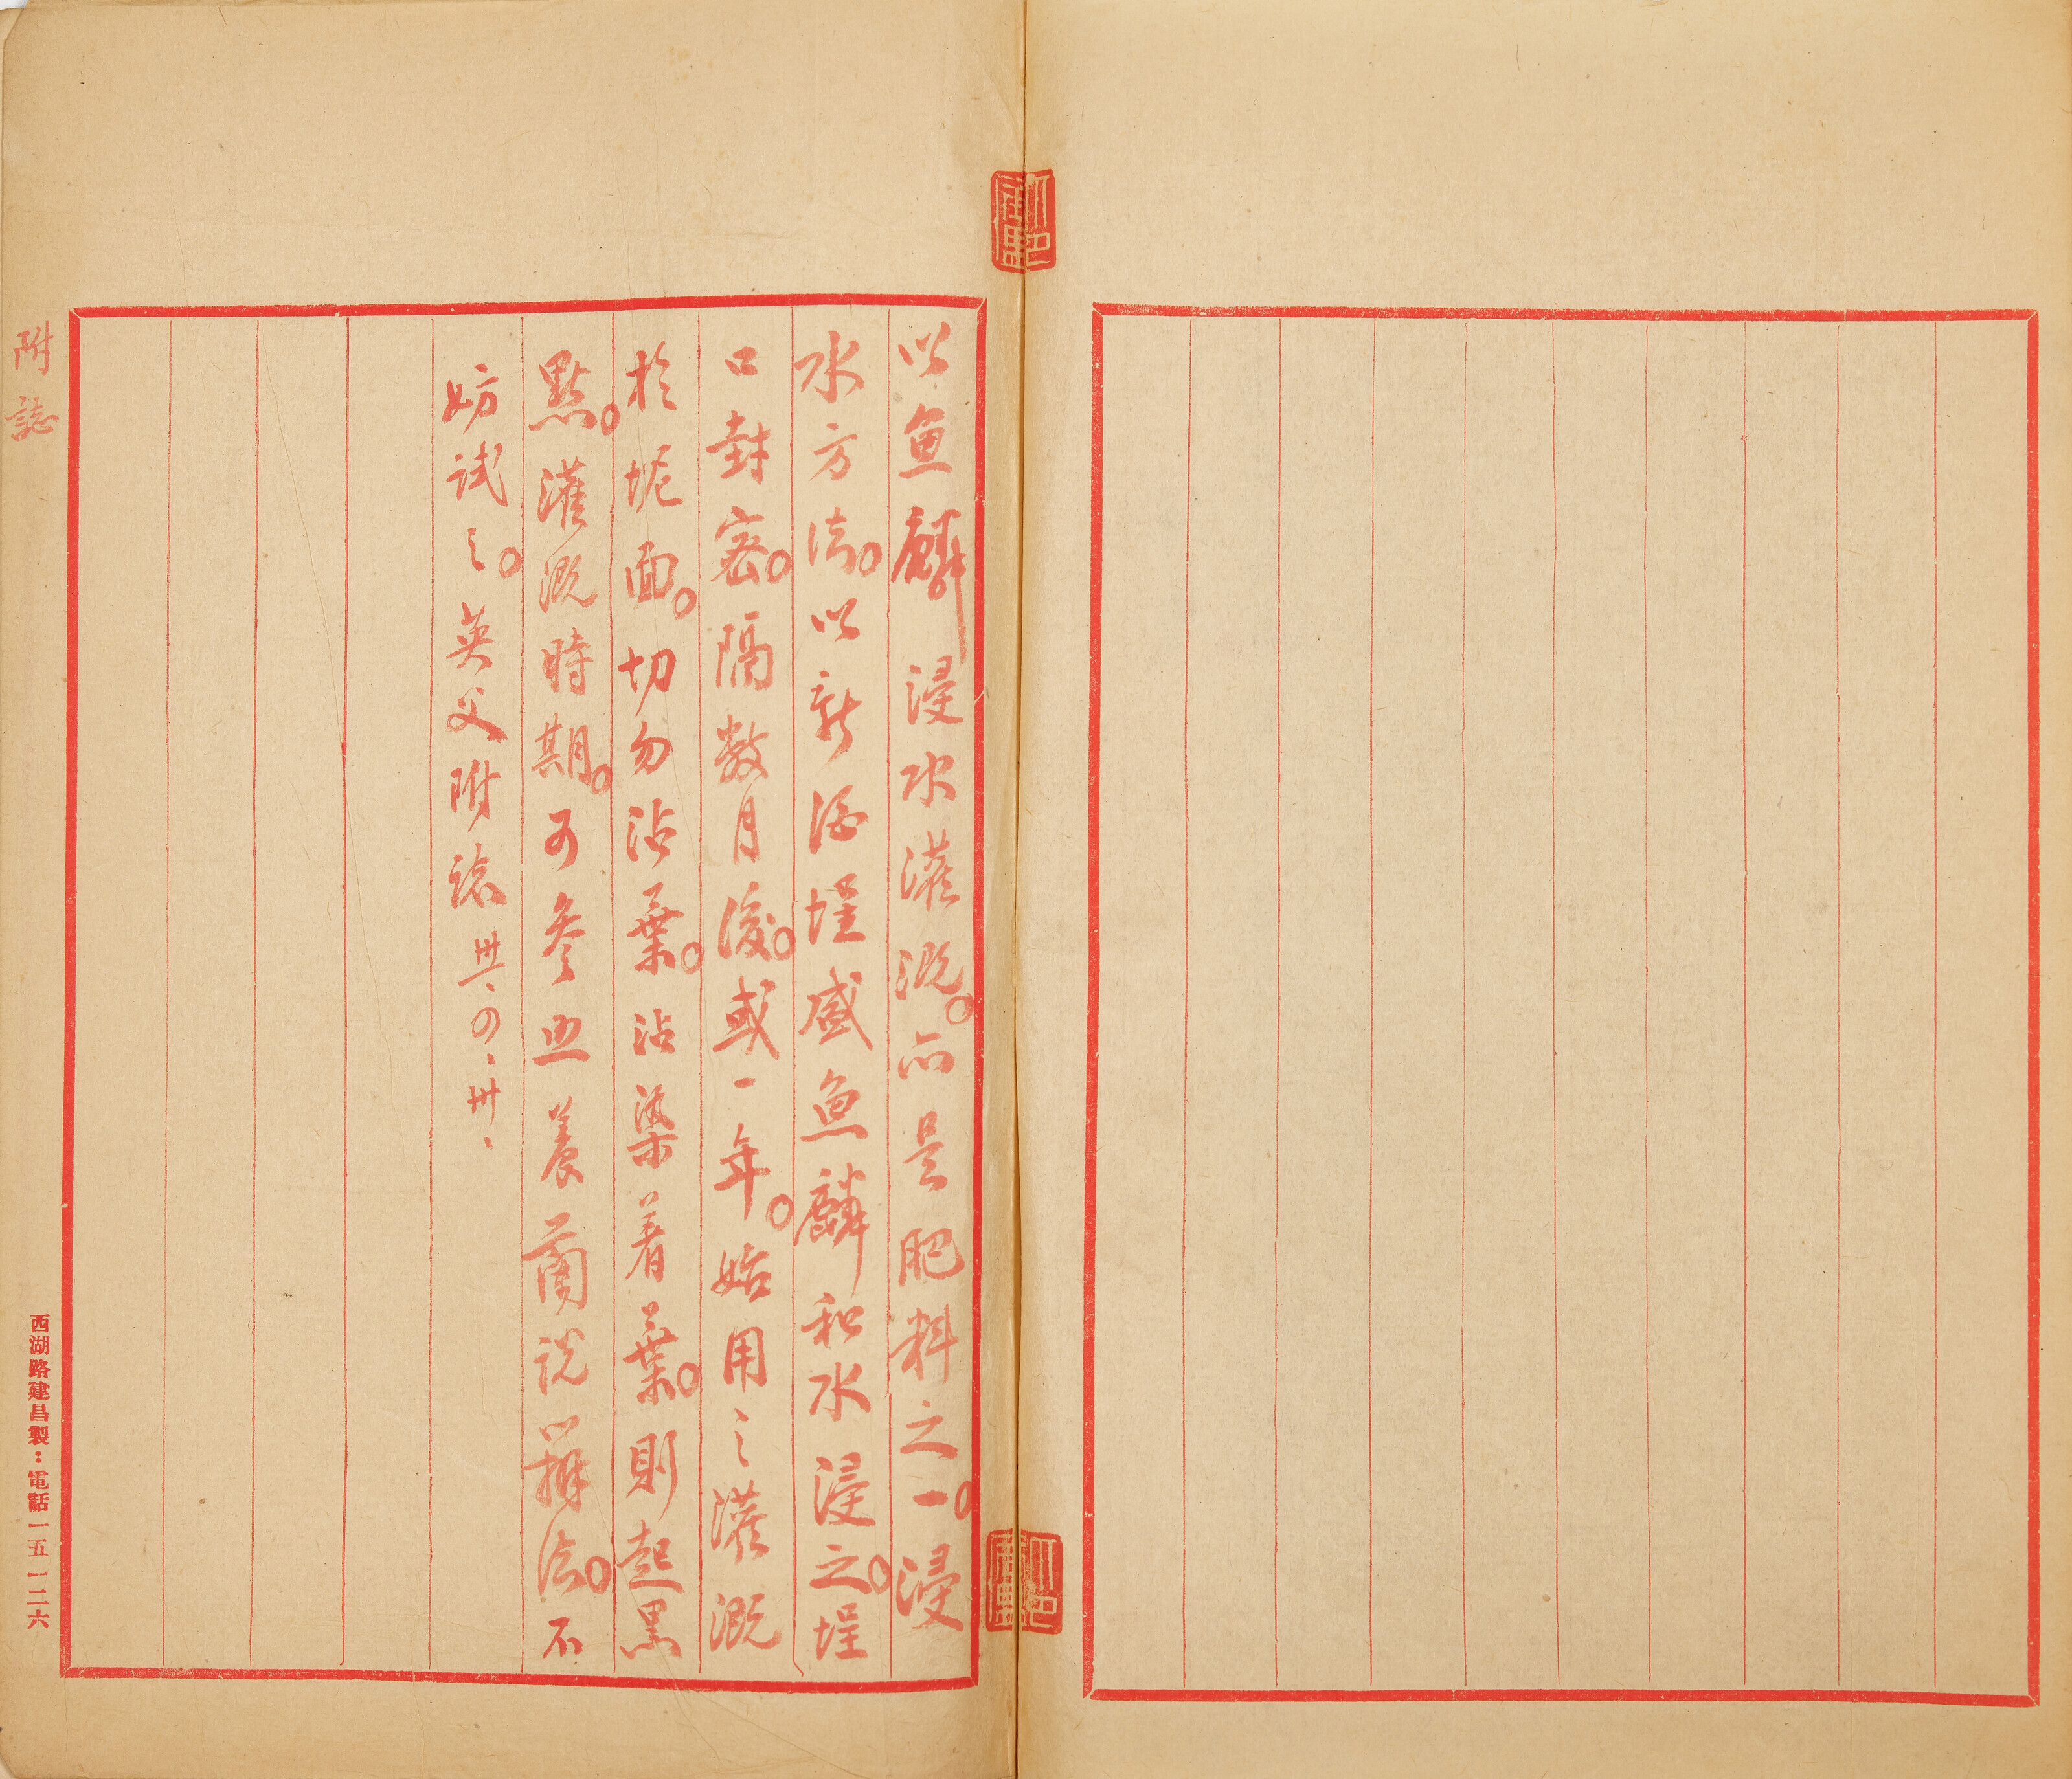 以魚麟浸水灌溉。亦是肥料之一。浸
水方法。以新酒埕盛魚麟和水浸之。埕
口封密。隔數月後。或一年。始用之灌溉
於坭面。切勿沾葉。沾染着葉。則起黑
點。灌溉時期。可參照養蘭說獬法。不
妨試之。英父附誌 卅一、四、卅、
附誌
西湖路建昌製：電話一五一二六